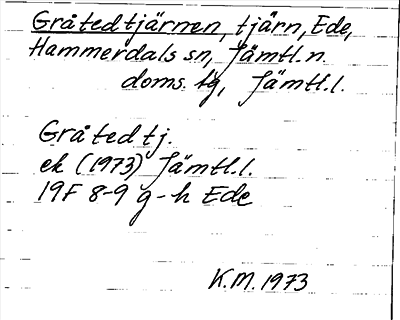 Gråtedtjärnen, tjärn, Ede,
Hammerdals sn, Jämtl. n.
doms. tg, Jämtl. l.
Gråtedtj.
ek (1973) Jämtl. l.
19F 8-9 g-h Ede
K.M. 1973